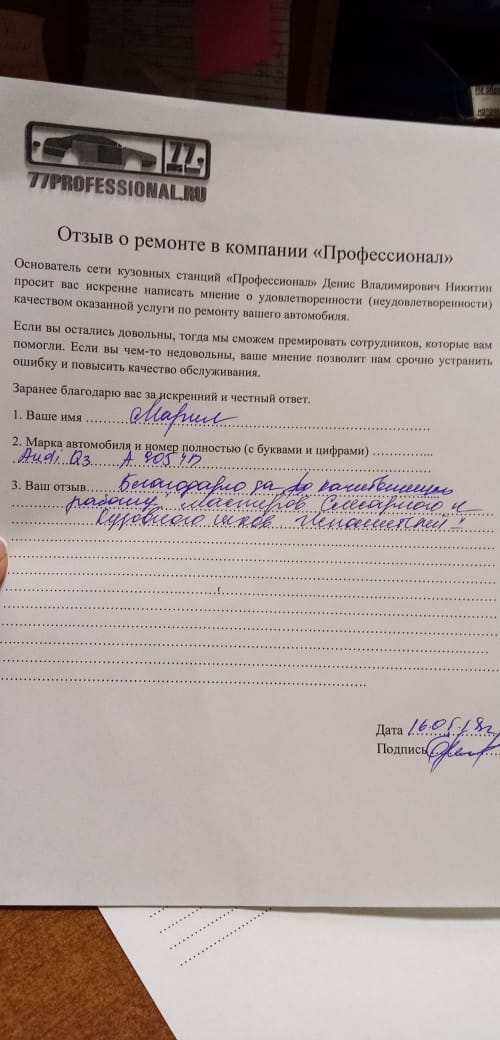 77
77PROFESSIONAL.RU
Отзыв о ремонте в компании «Профессионал»
Основатель сети кузовных станций «Профессионал» Денис Владимирович Никитин
просит вас искренне написать мнение о удовлетворенности (неудовлетворенности)
качеством оказанной услуги по ремонту вашего автомобиля.
Если вы остались довольны, тогда мы сможем премировать сотрудников, которые вам
помогли. Если вы чем-то недовольны, ваше мнение позволит нам срочно устранить
ошибку и повысить качество обслуживания.
Заранее благодарю вас за искренний и честный ответ.
1. Ваше имя
2. Марка автомобиля и номер полностью (с буквами и цифрами)
Audi Q3 А
3. Ваш отзыв Благодарю за качественную
работу мастеров Слесарного и
Кузовного цехов
Дата 16.05.18г
Подпись